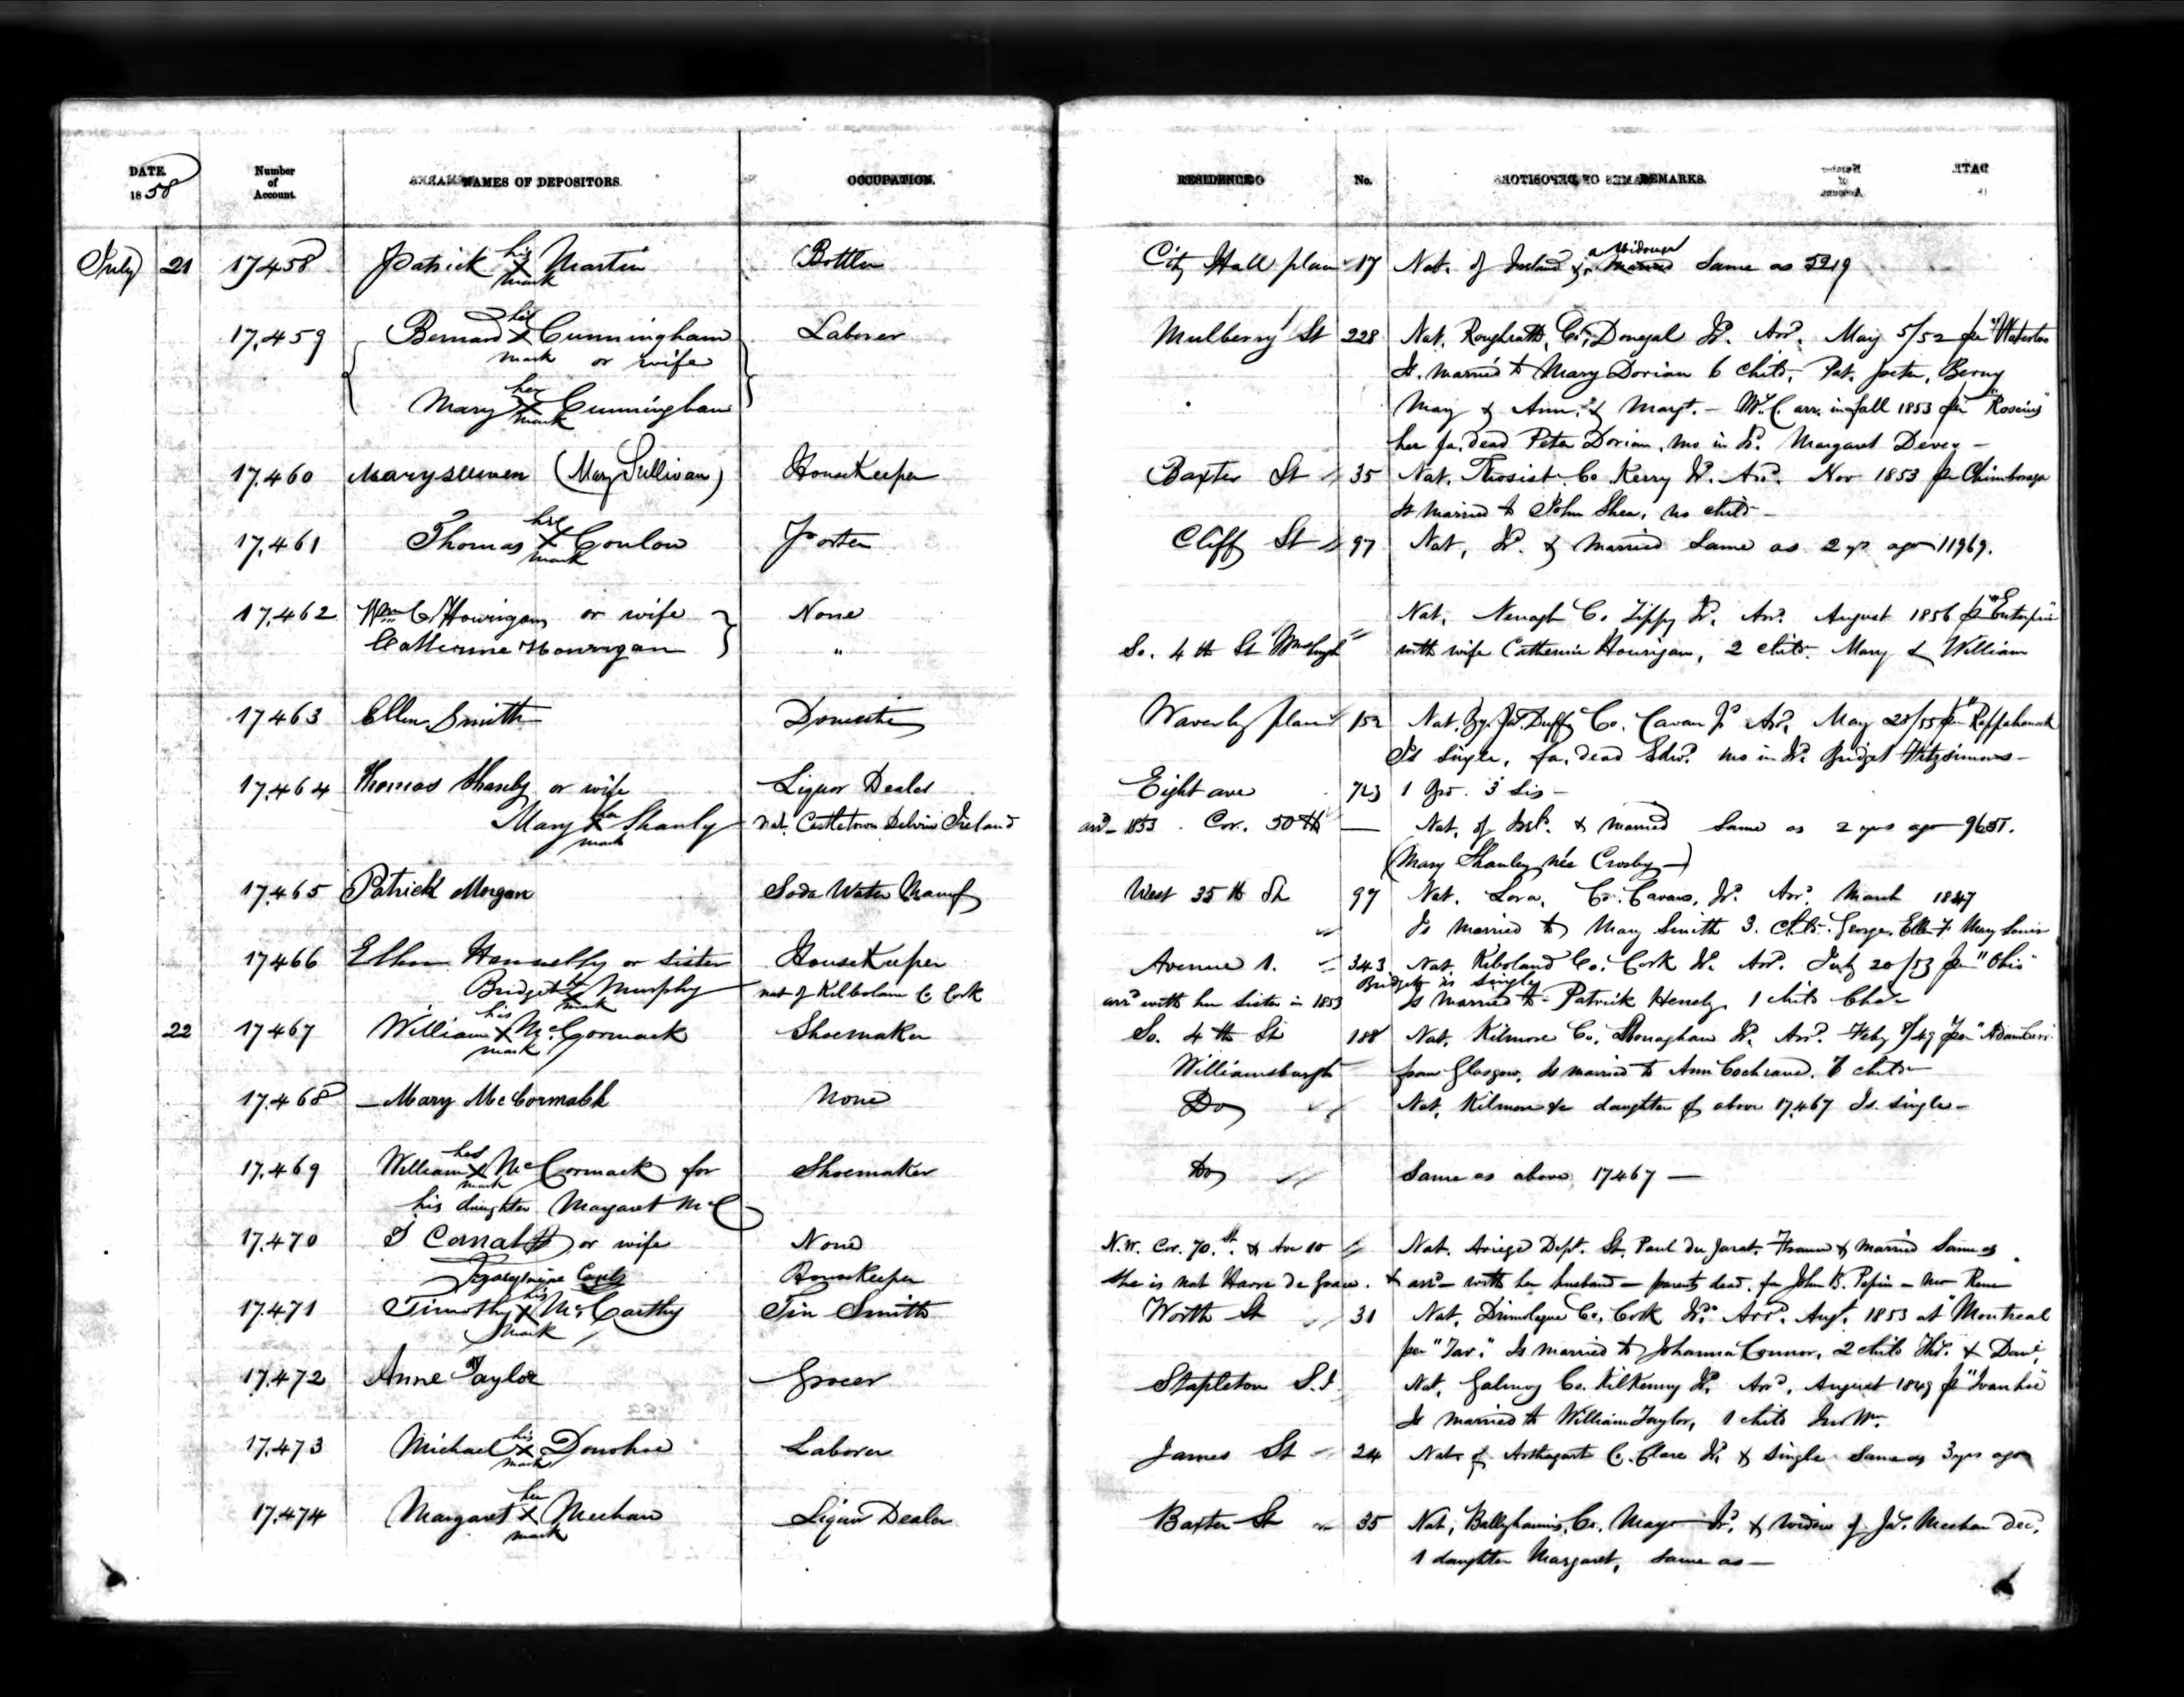 DATE 1858 Number of Account. NAMES OF DEPOSITORS. OCCUPATION. RESIDENCE No. REMARKS.
July 21 17458 Patrick his X mark Martin Bottler City Hall place 17 Nat. of Ireland & a Widower Married Same as 5219
17,459 Bernard his X mark Cunningham Laborer Mulberry St 228 Nat. Co. Donegal Ir. Arr. May 5/52 per "Waterloo
or wife Is married to Mary Dorian 6 chitd, Pat. Berny
Mary her X mark Cunningham May & Ann, & Margt. - Mr. C. arr. in fall 1853 per "Roscius"
her fa. dead Peter Dorian, mo in Ir. Margaret Devey -
17,460 Mary (Mary Sullivan) HouseKeeper Baxter St 35 Nat. Co Kerry Ir. Arr. Nov 1853 per Chimborazo
Is married to John Shea, no child -
17,461 Thomas his X mark Conlon Porter Cliff St 97 Nat, Ir. & Married Same as 2 yr ago 11969.
17,462 Wm C. Hourigan or wife None Nat, Nenagh Co Tippy Ir. Arr. August 1856 per "Enterprise"
Catherine Hourigan " So. 4th St Wmsburgh with wife Catherine Hourigan, 2 child. Mary & William
17463 Ellen Smith Domestic Waverly place 152 Nat. Duff Co. Cavan Ir Arr. May 28/55 per "Rappahanock
Is single, fa. dead Edwd. mo in Ir. Bridget Fitzsimons -
17,464 Thomas Shanly or wife Liquor Dealer Eight ave 723 1 Bro. 3 Sis -
Mary her X mark Shanly Nat. Castletown Delvin Ireland arrd - 1853 . Cor. 50th — Nat, of Irel. & married Same as 2 yrs ago 9657.
(Mary Shanley née Crosby —)
17,465 Patrick Morgan Soda Water Manuf West 35th St 97 Nat. Lora, Co. Cavan, Ir. Arr. March 1847
Is married to Mary Smith 3. child. George, Ellen F May Louis
17466 Ellen Hennelly or sister HouseKeeper Avenue 1. 343 Nat, Kiboland Co. Cork Ir. Arr. July 20/53 per "Ohio"
Bridget is single
Bridget her X mark Murphy nat of Kilbolane Co Cork arrd with her Sister in 1853 Is married to Patrick Henely 1 child Chas
22 17467 William his X mark McCormack Shoemaker So. 4th St 188 Nat. Kilmore Co. Monaghan Ir. Arr. Feby 8/49 per "Adam Carr"
Williamsburgh from Glasgow, Is married to Ann Cochrane. 7 child -
17,468 — Mary McCormack None Do Nat, Kilmore &c daughter of above 17,467 Is. single -
17,469 William his X mark McCormack for Shoemaker Do Same as above 17467 —
his daughter Margaret McC
17,470 or wife None N.W. Cor. 70.th St. & Ave 10 Nat. Ariege Dept. St. Paul du Jarat. France & married Same as
HouseKeeper She is nat Havre de Grace. & arrd - with her husband - parents dead. fa John B. Papin - mo Rene
17,471 Timothy his X mark McCarthy Tin Smith Worth St 31 Nat, Drimolague Co. Cork Ir. Arr. Augt. 1853 at Montreal
per "Tar." Is married to Johanna Connor, 2 child Ths. & Danl.
17,472 Anne Taylor Grocer Stapleton S.I. Nat, Galmoy Co. Kilkenny Ir. Arr. August 1849 p "Ivanhoe"
Is married to William Taylor, 1 child Jno Wm.
17,473 Michael his X mark Donohoe Laborer James St 24 Nat of Co. Clare Ir. & single Same as 3 yrs ago
17,474 Margaret her X mark Meehan Liquor Dealer Baxter St 35 Nat, Ballyhaunis, Co. Mayo Ir. & widow of Jas. Meehan Dec,
1 daughter Margaret, same as —